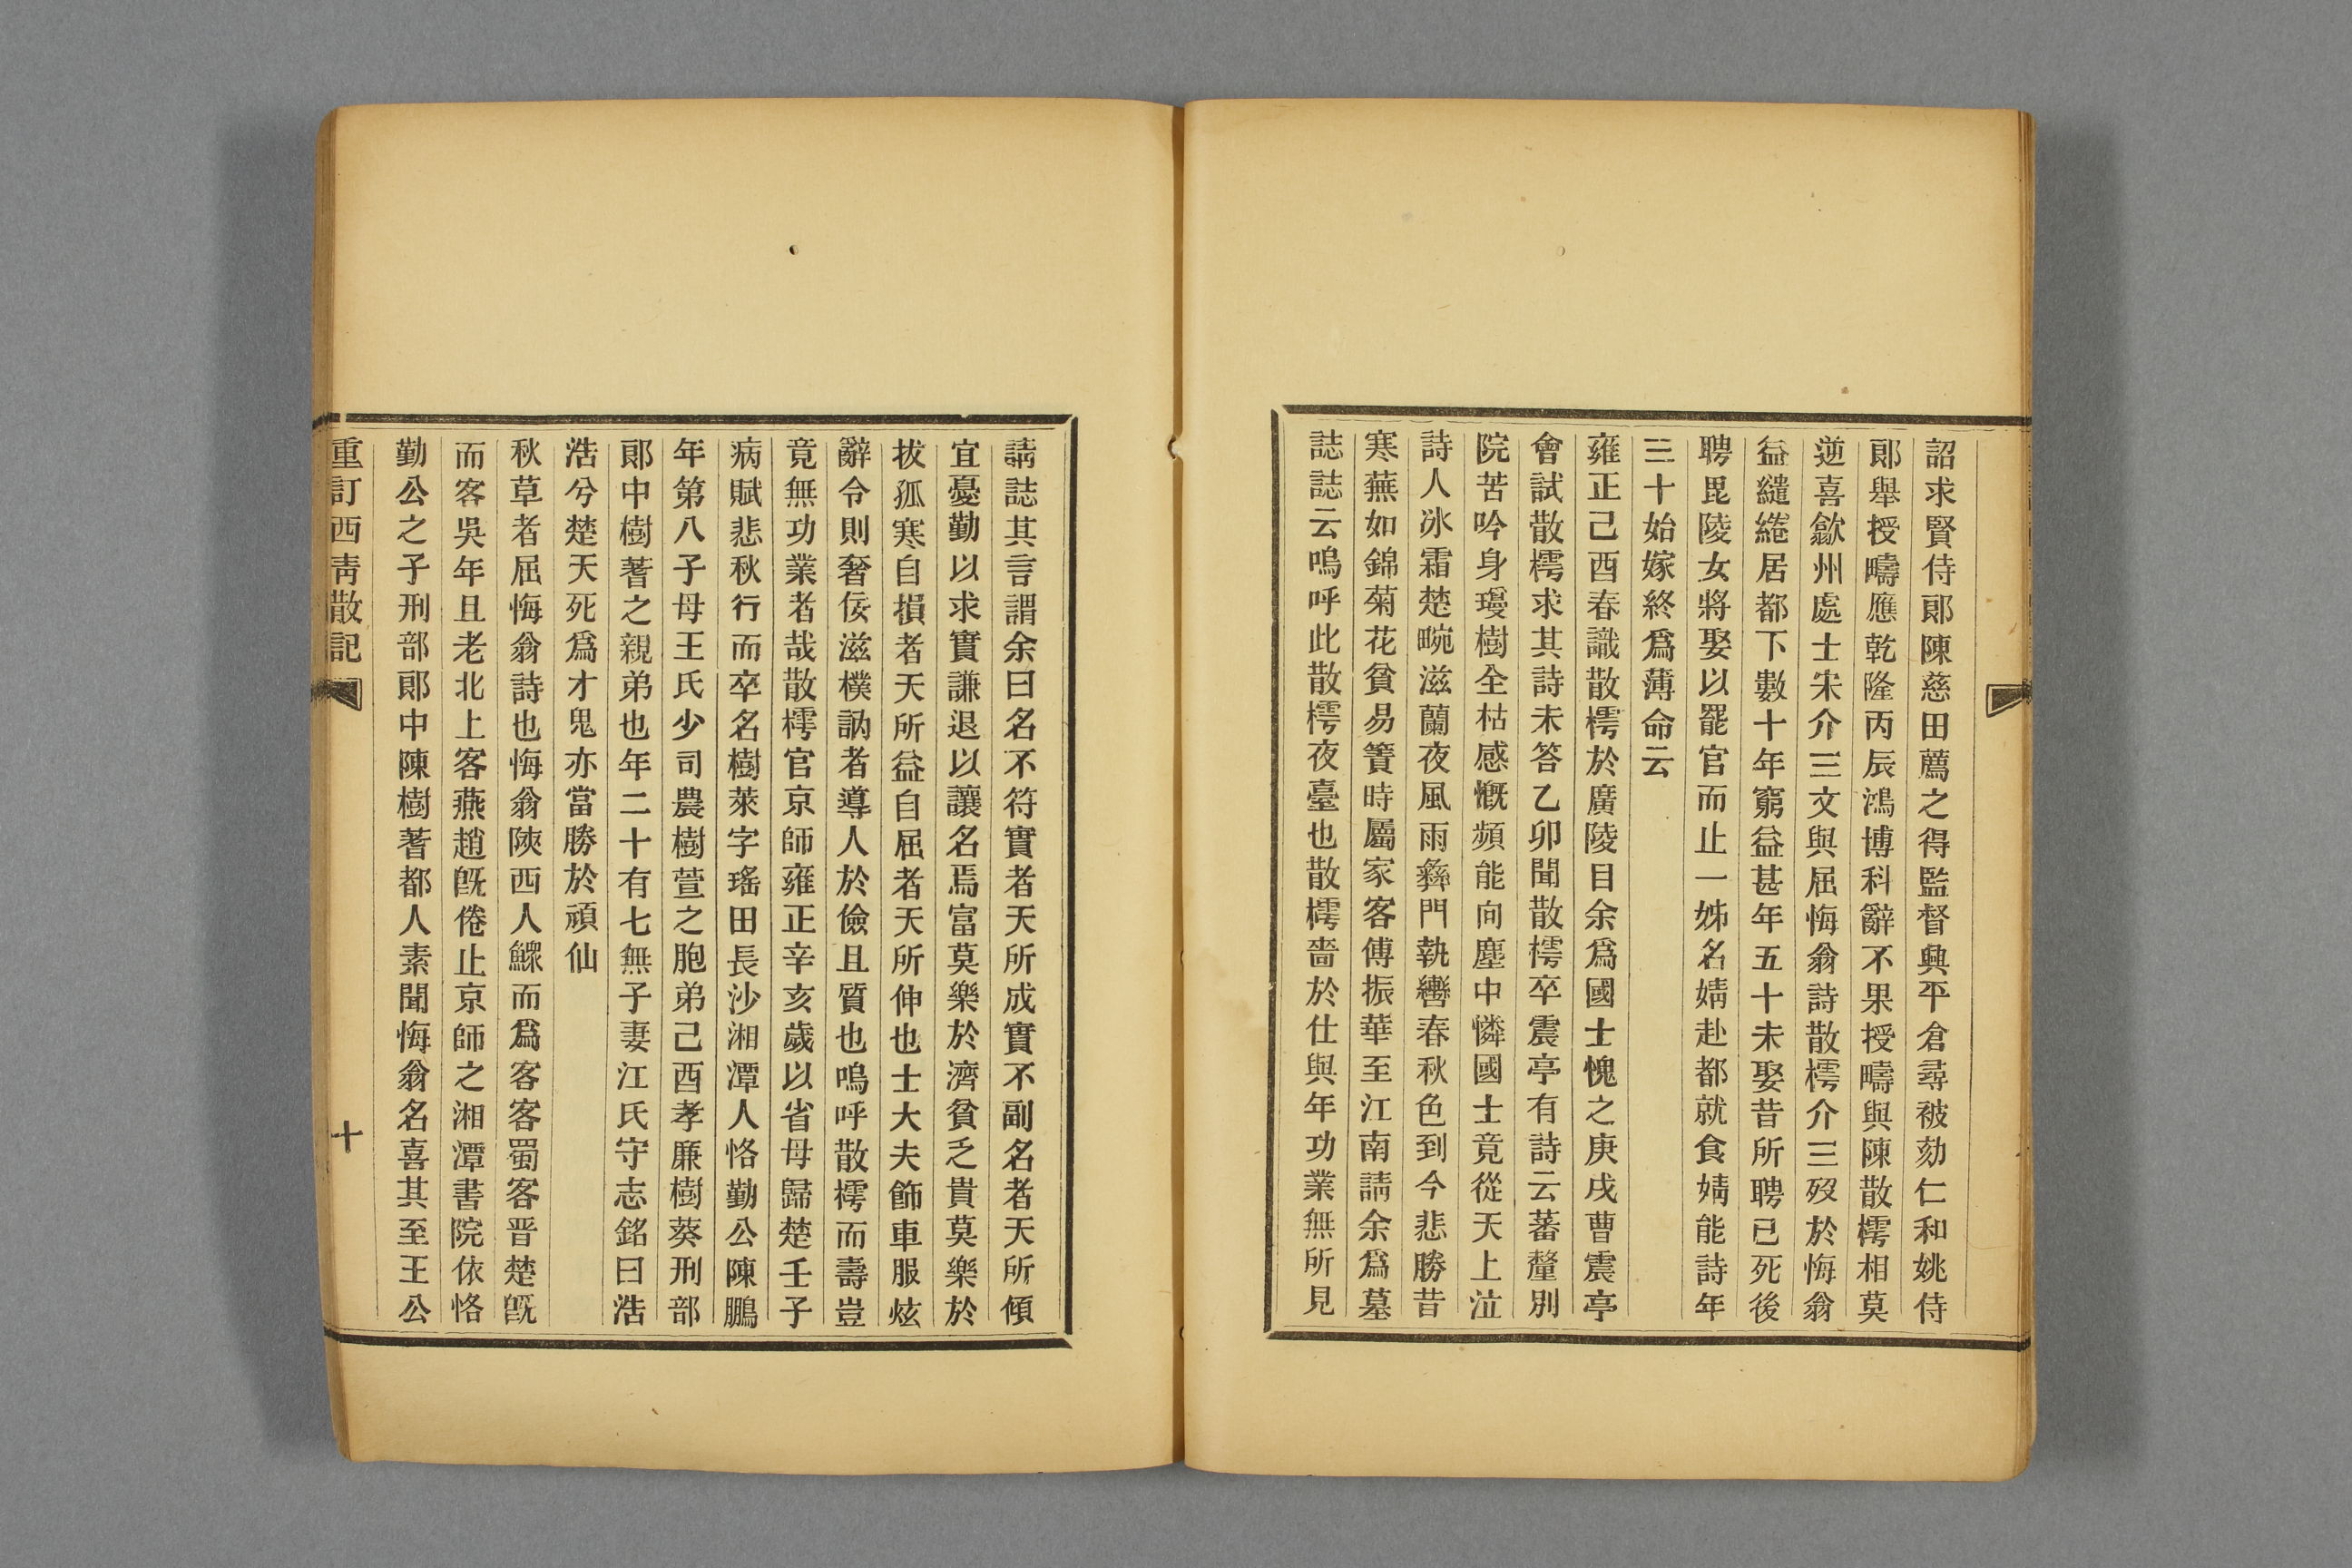 詔求賢侍郎陳慈田薦之得監督興平倉尋被劾仁和姚侍
郎舉授疇應乾隆丙辰鴻博科辭不果授疇與陳散樗相莫
逆喜歙州處士宋介三文與屈悔翁詩散樗介三歿於悔翁
益繾綣居都下數十年窮益甚年五十未娶昔所聘已死後
聘毘陵女將娶以罷官而止一姊名婧赴都就食婧能詩年
三十始嫁終爲薄命云
雍正己酉春識散樗於廣陵目余爲國士愧之庚戌曹震亭
會試散樗求其詩未答乙卯聞散樗卒震亭有詩云蕃釐別
院苦吟身璦樹全枯感慨頻能向塵中憐國士竟從天上泣
詩人冰霜楚畹滋蘭夜風雨彝門執轡春秋色到今悲勝昔
寒蕪如錦菊花貧易簀時屬家客傅振華至江南請余爲墓
誌誌云嗚呼此散樗夜臺也散樗嗇於仕與年功業無所見
請誌其言謂余曰名不符實者天所成實不副名者天所傾
宜憂勤以求實謙退以讓名焉富莫樂於濟貧乏貴莫樂於
拔孤寒自損者天所益自屈者天所伸也士大夫飾車服炫
辭令則奢佞滋樸訥者導人於儉且質也嗚呼散樗而壽豈
竟無功業者哉散樗官京師雍正辛亥歲以省母歸楚壬子
病賦悲秋行而卒名樹萊字瑤田長沙湘潭人恪勤公陳鵬
年第八子母王氏少司農樹萱之胞弟己酉孝廉樹葵刑部
郎中樹蓍之親弟也年二十有七無子妻江氏守志銘曰浩
浩兮楚天死爲才鬼亦當勝於頑仙
秋草者屈悔翁詩也悔翁陝西人鰥而爲客客蜀客晋楚旣
而客吳年且老北上客燕趙旣倦止京師之湘潭書院依恪
勤公之子刑部郎中陳樹蓍都人素聞悔翁名喜其至王公
重訂西靑散記
十